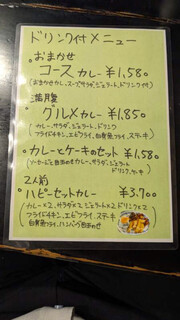 ドリンク付メニュー
おまかせ
コースカレー ¥1,580
(おまかせカレー、スープ、サラダ、ジェラート、ドリンク付)
満腹
グルメカレー ¥1,850
カレー、サラダ、ジェラート、ドリンク
(フライドチキン、エビフライ、ステーキ
白身魚フライ、
カレーとケーキのセット ¥1,580
カレー、サラダ、ジェラート
ドリンク、ケーキ
2人前
ハッピーセットカレー ¥3,700
カレー×2、サラダ×2、ジェラート×2、ドリンク×2
(フライドチキン、エビフライ、ステーキ
白身魚フライ、ハンバーグ